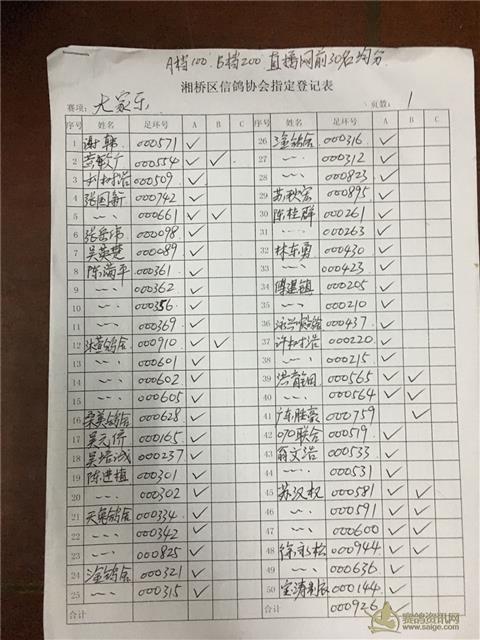 A档100. B档200 直播网前30名均分
湘桥区信鸽协会指定登记表
赛项: 大家乐 页数: 1
序号 姓名 足环号 A B C 序号 姓名 足环号 A B C
1 谢韩 000571 ✓
2 000554 ✓ ✓
3 000509 ✓
4 张国新 000742 ✓
5 〃 000661 ✓ ✓
6 张岳伟 000098 ✓
7 吴英楚 000089 ✓
8 陈满平 000361 ✓
9 〃 000362 ✓
10 〃 000356 ✓
11 〃 000369 ✓
12 鸽舍 000910 ✓ ✓
13 〃 000601 ✓
14 〃 000602 ✓
15 〃 000605 ✓
16 荣美鸽舍 000628 ✓
17 吴元侨 000165 ✓
18 吴培诚 000237 ✓
19 陈进植 000301 ✓
20 〃 000302 ✓
21 天兔鸽舍 000334 ✓
22 〃 000342 ✓
23 〃 000825 ✓
24 淦鸽舍 000321 ✓
25 〃 000315 ✓
合计
26 淦鸽舍 000316 ✓
27 〃 000312 ✓
28 〃 000823 ✓
29 苏秋宗 000895 ✓
30 陈桂群 000261 ✓
31 〃 000263 ✓
32 林东勇 000430 ✓
33 〃 000423 ✓
34 傅建镇 000205 ✓
35 〃 000210 ✓
36 000437 ✓
37 许树浩 000220 ✓
38 〃 000215 ✓
39 洪育钿 000565 ✓ ✓
40 〃 000564 ✓ ✓
41 广东胜豪 000759 ✓
42 070联合 000519 ✓
43 翁文浩 000533 ✓
44 〃 000531 ✓
45 苏汉权 000581 ✓ ✓
46 〃 000591 ✓ ✓
47 〃 000600 ✓ ✓
48 徐永松 000944 ✓ ✓
49 〃 000636 ✓
50 宝涛制辰 000144 ✓
合计 000926 ✓
赛鸽资讯网
www.saige.com